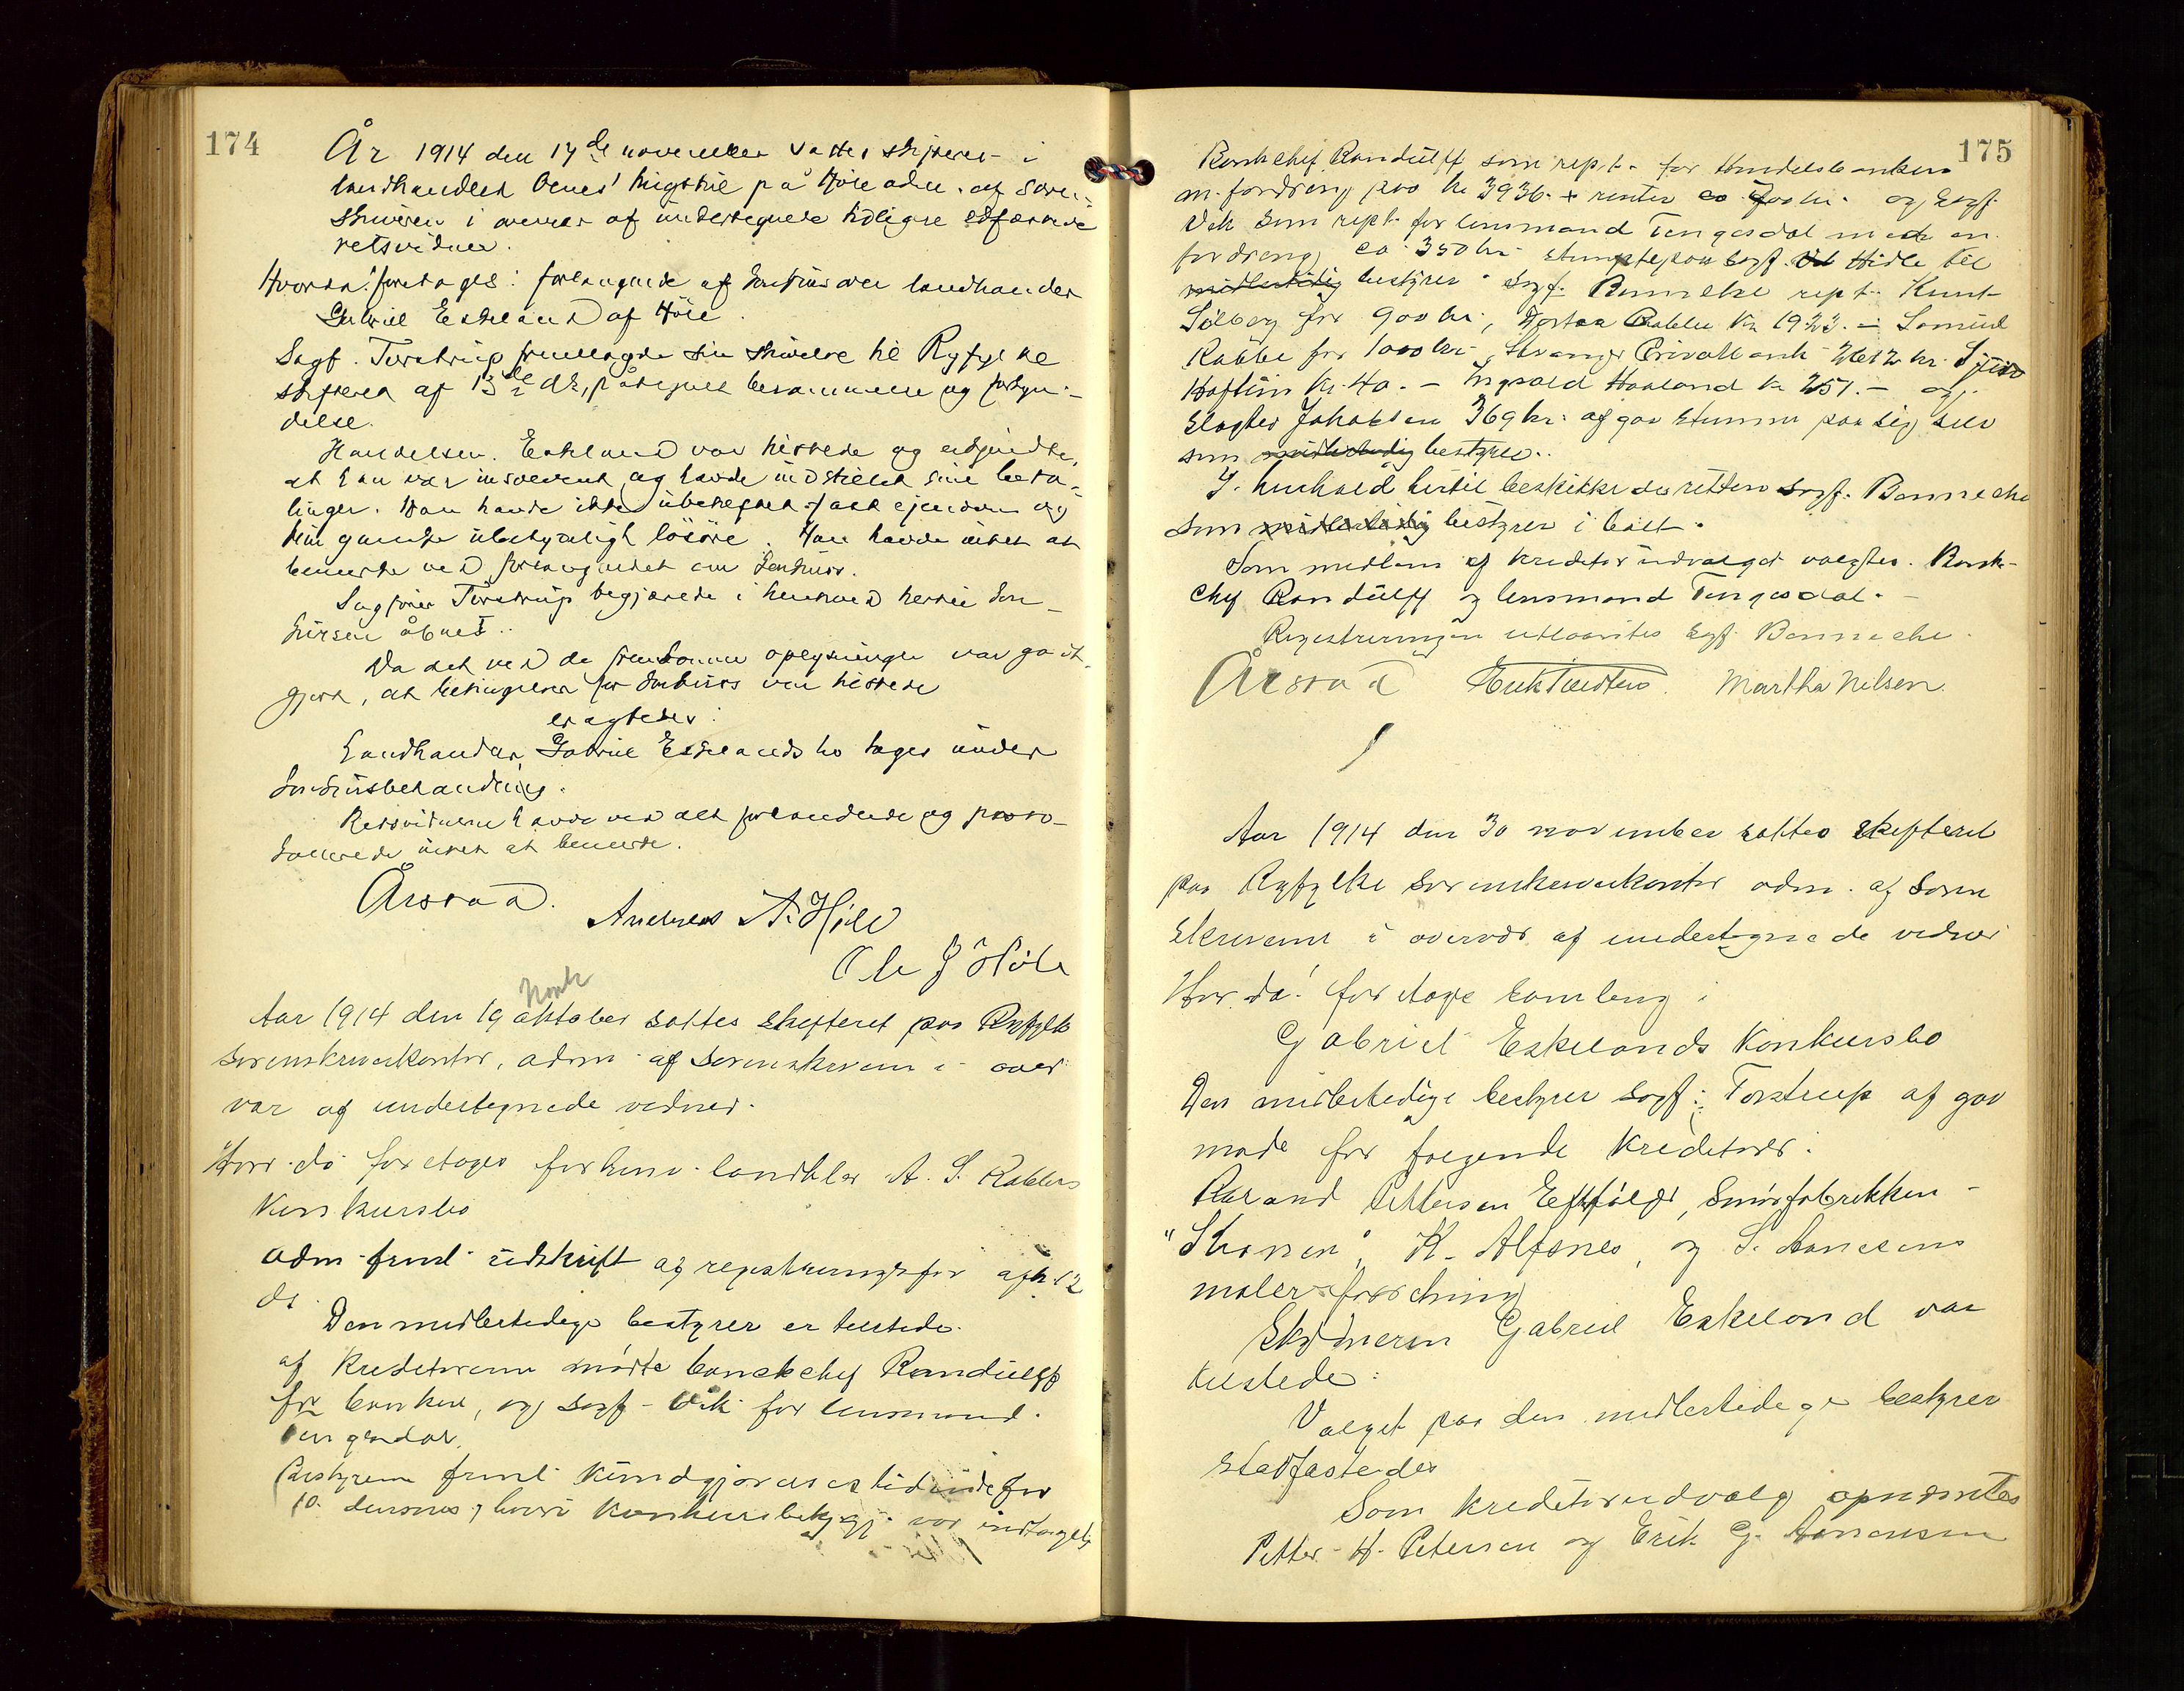 174
År 1914 den 17de november sattes skifteret i
landhandler Benes' hus på Höle adm. af Soren-
skriveren i overvær af undertegnede tidligere edfæstede
retsvidner.
Hvorda! foretoges: forlangende af konkurs over landhandler
Gabriel Eskeland af Höle.
Sagf. Torstrup fremlagde sin skrivelse til Ryfylke
skifteret af 13de ds, påtegnet berammelse og forkyn-
delse.
Handelsm. Eskeland var tilstede og erkjendte,
at han var insolvent, og havde indstillet sine beta-
linger. Han havde ikke ubeheftet fast ejendom og
kun ganske ubetydeligt lösöre. Han havde intet at
bemerke ved forlangendet om konkurs.
Sagförer Torstrup begjærede i henhold hertil kon-
kursen åbnet.
Da det ved de fremkomne oplysninger var godt-
gjort, at betingelserne for konkurs var tilstede
eragtedes:
Landhandler Gabriel Eskelands bo tages under
konkursbehandling.
Retsvidnerne havde ved det forhandlede og proto-
kollerede intet at bemerke.
Årstad.
Andreas A. Höle
Ole J Höle
Novbr
Aar 1914 den 19 oktober sattes skifteret paa Ryfylke
sorenskriverkontor, adm. af sorenskriveren i over
vær af undertegnede vidner.
Hvor da foretoges forhenv. landhdlr A. S. Rabbes
Konkursbo
Adm. freml. udskrift af registreringsfor afh. 12
ds.
Den midlertidige bestyrer er tilstede.
af Kreditorerne mødte bankchef Randulff
for banken, og sagf. Vik for lensmand
Tengesdal.
Bestyreren freml. Kundgjørelsestidende for
10. densmds, hvori konkursbekjgj. var indtaget.
175
Bankchef Randulff som rept. for Handelsbanken
m. fordring paa kr 3936. + renter ca kr. og sagf.
Vik som rept. for lensmand Tengesdal med en
fordring ca. 350 kr. stemte paa sagf. Hidle til
midlertidig bestyrer. Sagf. Bonnevie rept. Knut
Silberg for 900 kr., Rabbe kr 1923.- Samuel
Rabbe for 1000 kr., Stavanger Privatbank 2612 kr.
Haftun kr. 40.- Ingvald Haaland kr 251.- og
Slagter Jakobsen 369 kr. afgav stemme paa sig selv
som midlertidig bestyrer.
I henhold hertil beskikkedes retten sagf. Bonnevie
som midlertidig bestyrer i boet.
Som medlem af kreditorudvalget valgtes Bank-
chef Randulff og lensmand Tengesdal.-
Registreringen udlaantes sagf. Bonnevie.
Årstad Martha Nilsen.
Aar 1914 den 30 november sattes skifteret
paa Ryfylke sorenskriverkontor adm. af Soren
skriveren i overvær af undertegnede vidner
Hvor da! foretoges samling i
Gabriel Eskelands Konkursbo
Den midlertidige bestyrer sagf. Torstrup af gav
møde for følgende kreditorer:
Rasmus Pettersen Eftfølgr, Smørfabrikken
"Kronen", K. Alfsnes, og S. Aanesens
malerforretning
Skyldneren Gabriel Eskeland var
tilstede.
Valget paa den midlertidige bestyrer
stadfæstedes
Som kreditorudvalg opnævntes
Petter H. Petersen og Erik G. Aanensen